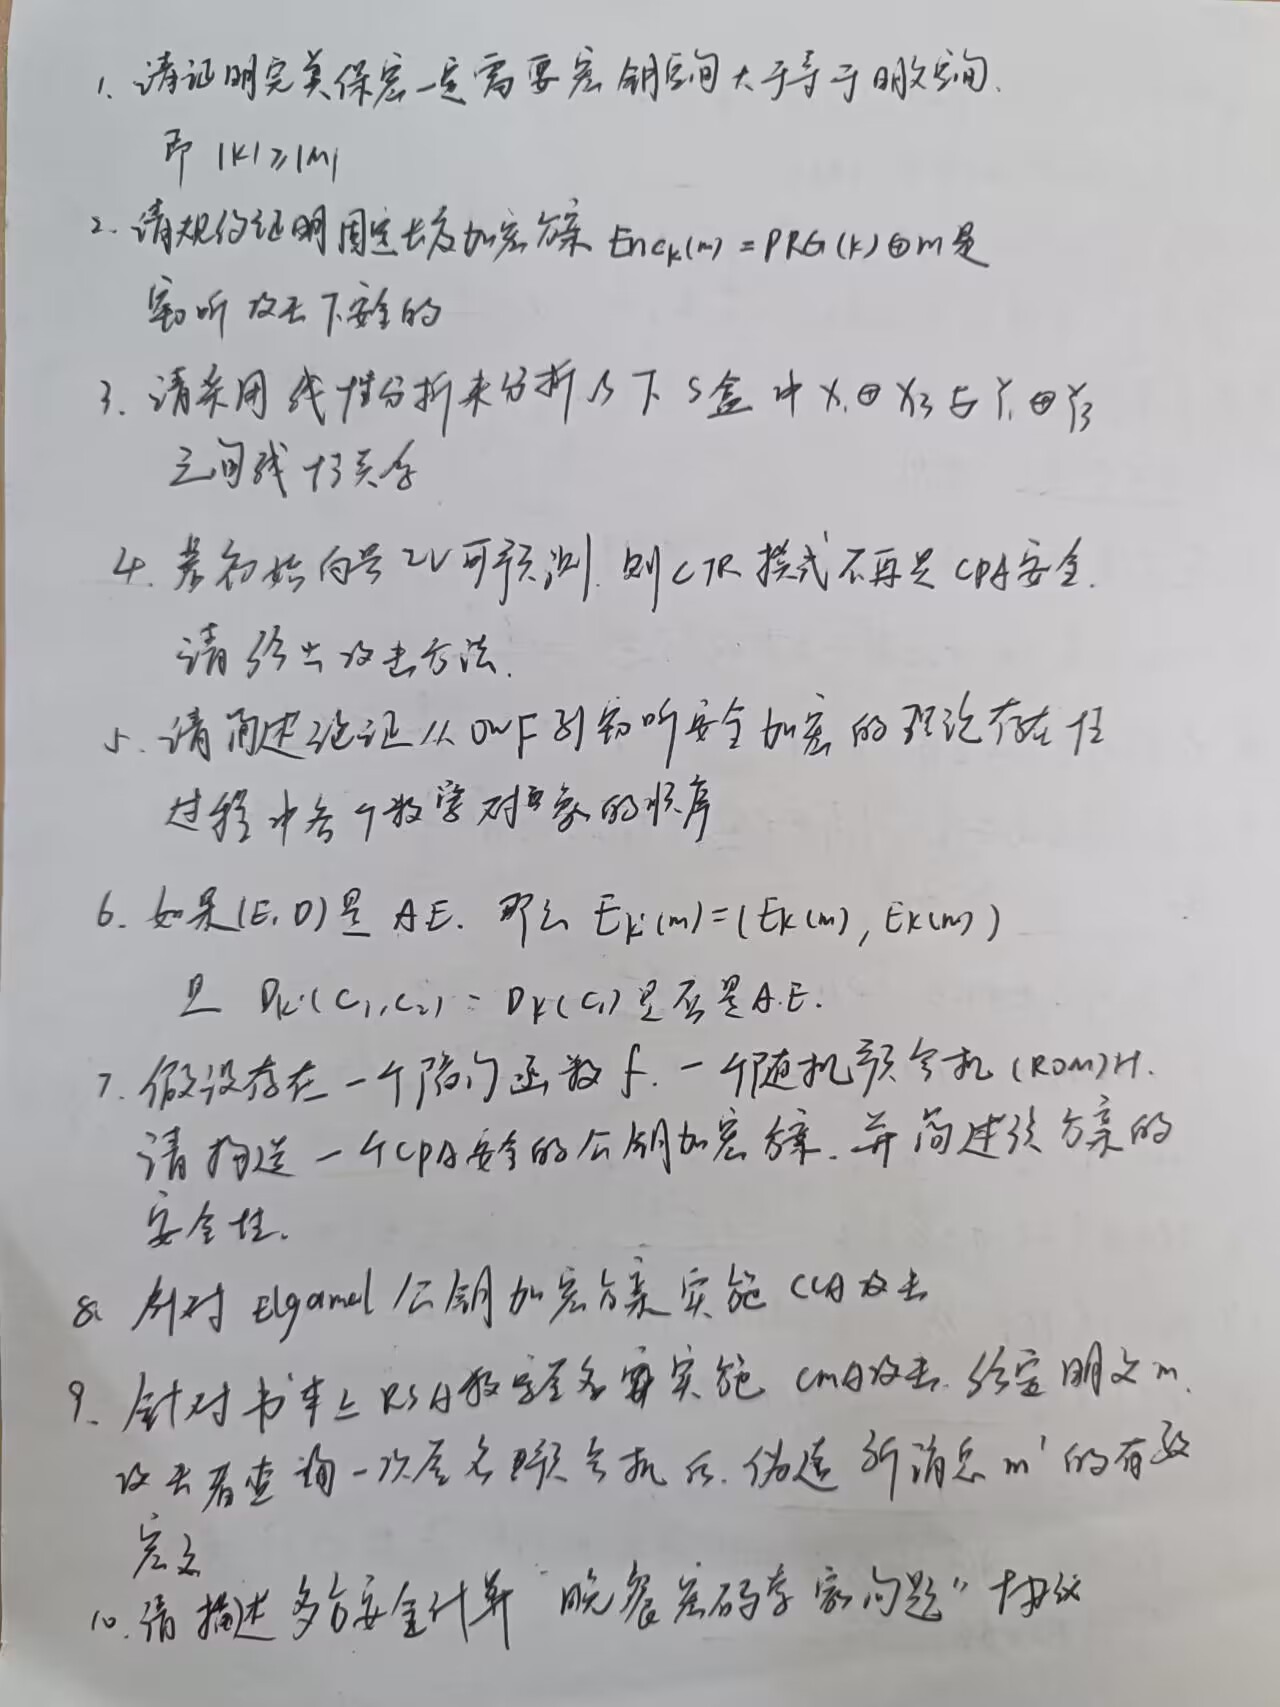 1. 请证明完美保密一定需要密钥空间大于等于明文空间.
即 |K|≥|M|
2. 请规约证明固定长度加密方案 Enck(m) = PRG(k)⊕m是
窃听攻击下安全的
3. 请采用线性分析来分析以下S盒中X₁⊕X₃与Y₁⊕Y₃
之间线性关系
4. 若初始向量IV可预测.则CTR模式不再是CPA安全.
请给出攻击方法.
5. 请简述论证从OWF到窃听安全加密的理论存在性
过程中各个数学对象的顺序
6. 如果(E,D)是 A.E. 那么 Ek'(m)=(Ek(m), Ek(m))
且 Dk'(C₁,C₂) = Dk(C₁)是否是A.E.
7. 假设存在一个陷门函数f.一个随机预令机(ROM)H.
请构造一个CPA安全的公钥加密方案.并简述该方案的
安全性.
8. 针对Elgamal公钥加密方案实施CCA攻击
9. 针对书本上RSA数字签名实施 CMA攻击.给定明文m.
攻击者查询一次签名预令机后.伪造新消息m'的有效
密文
10. 请描述多方安全计算“晚餐密码学家问题”协议